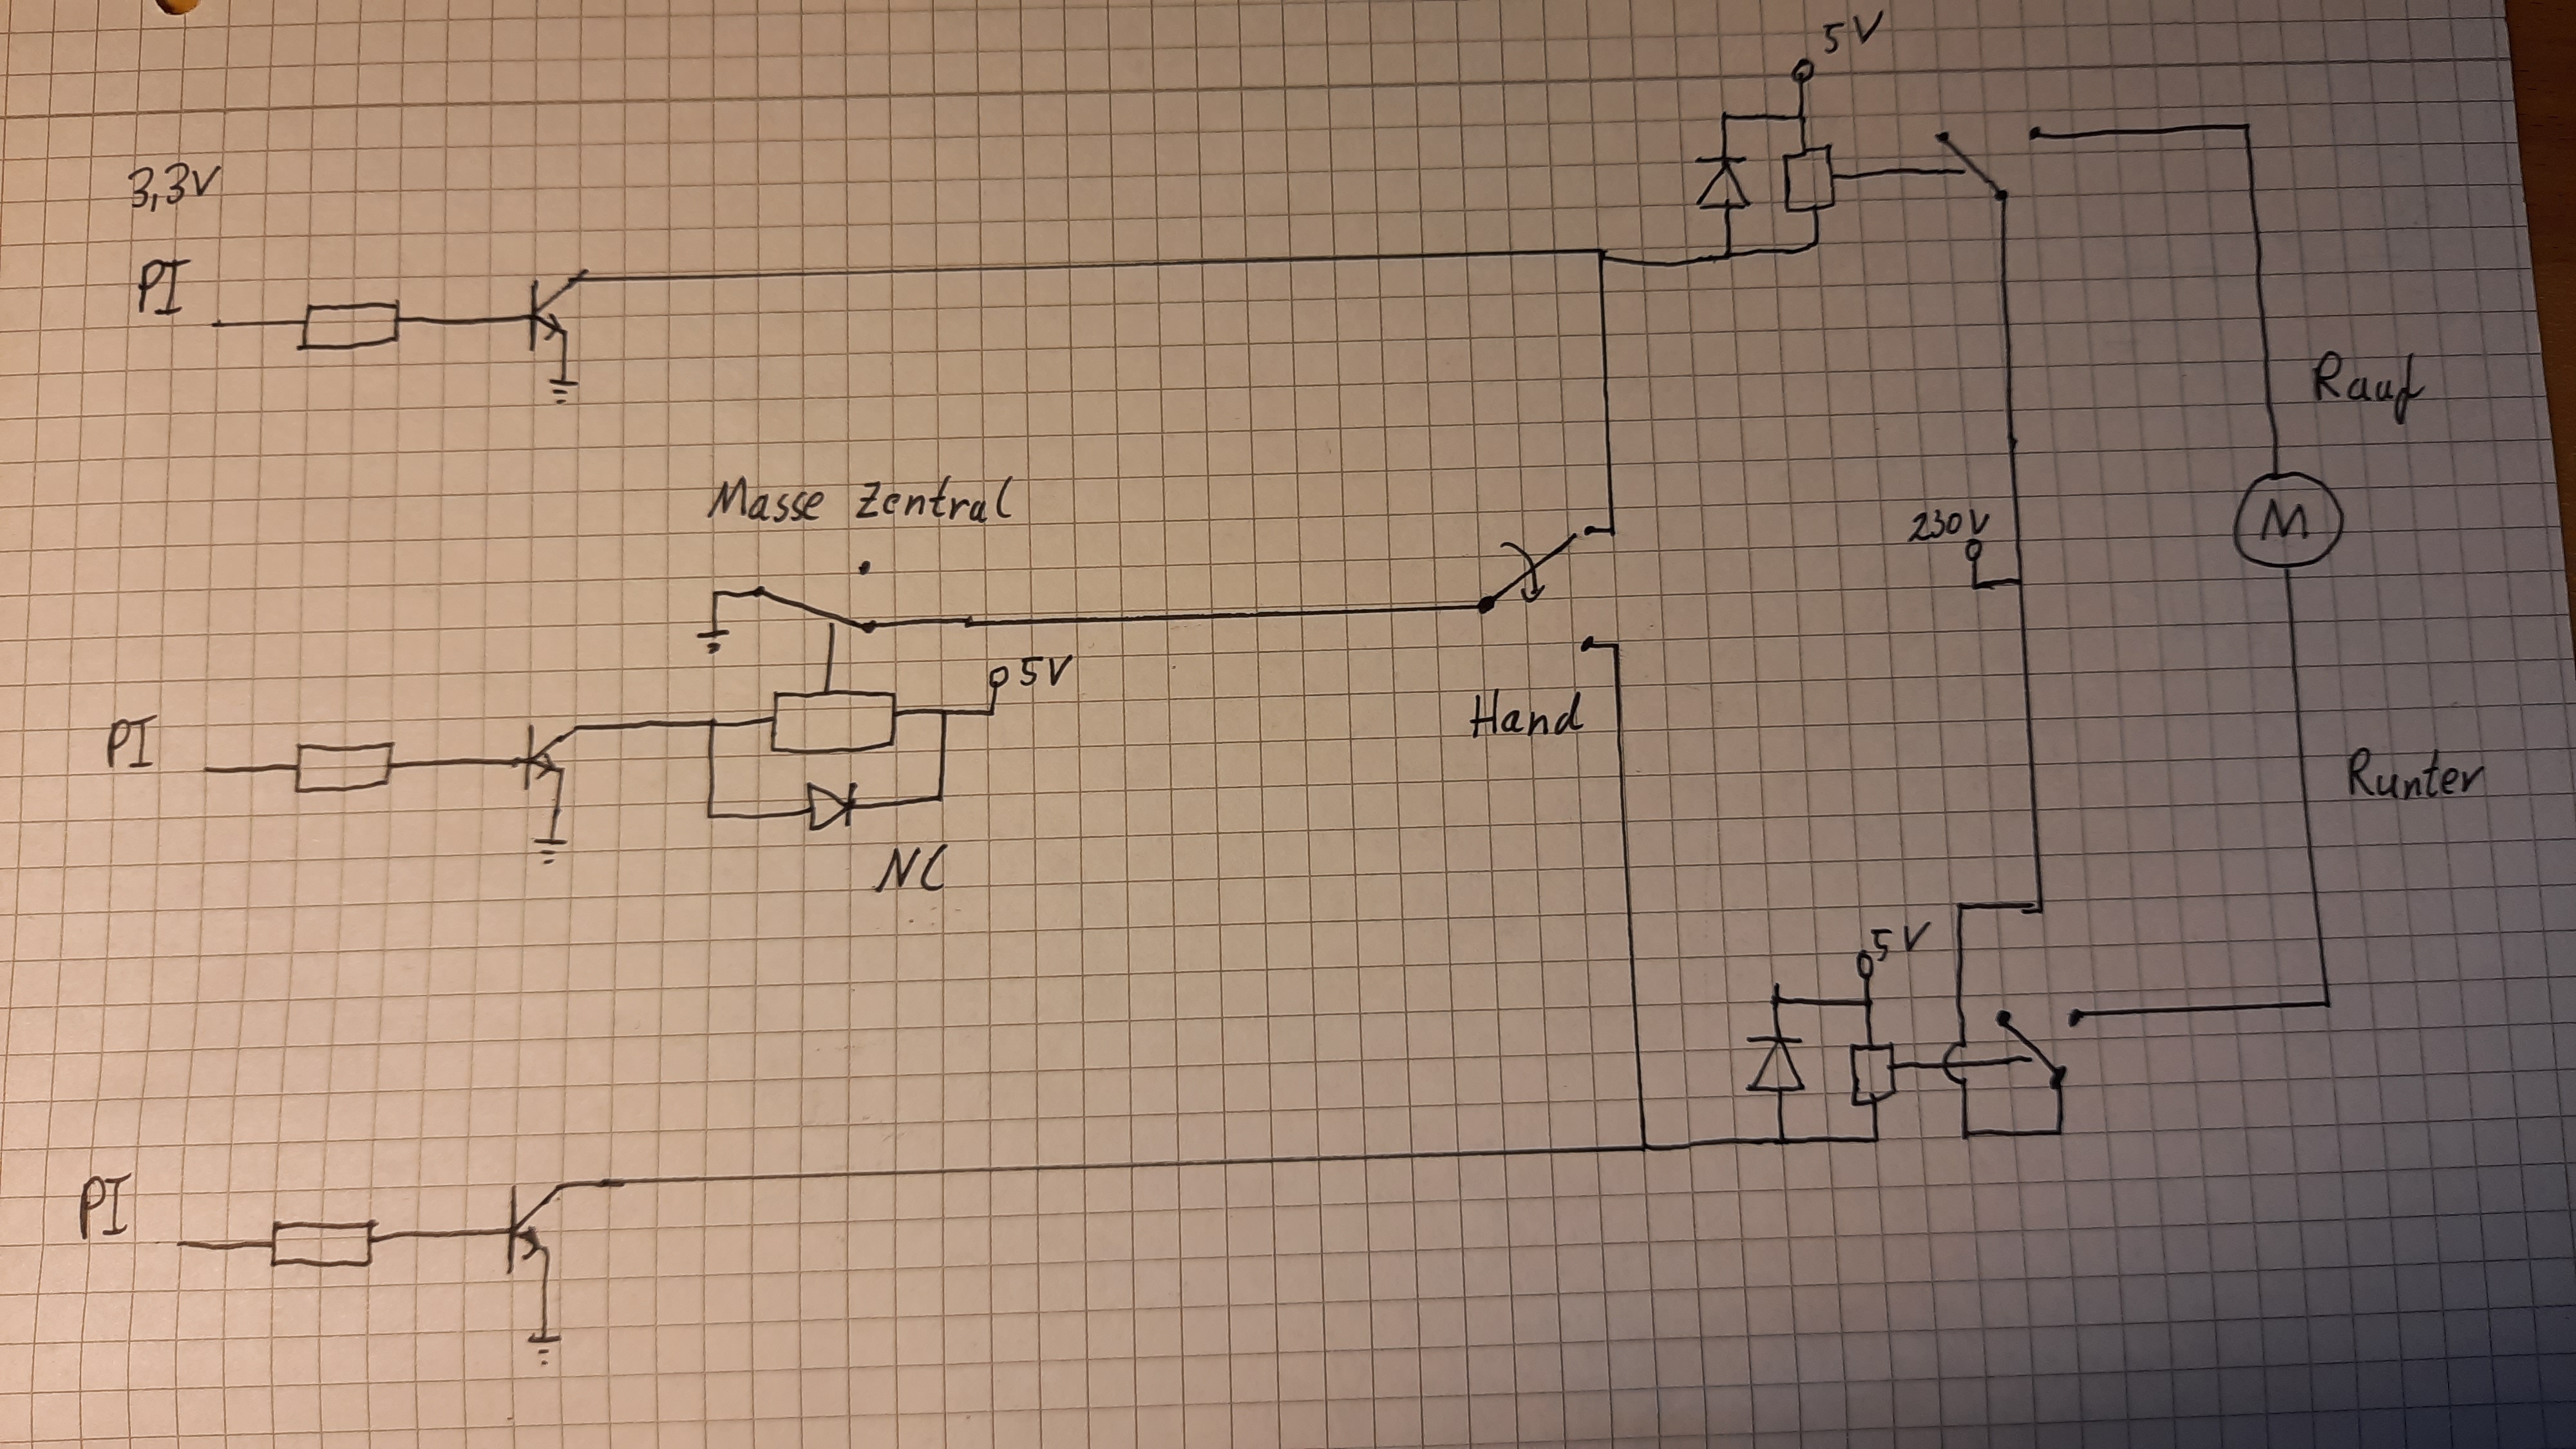 5V
3,3V
PI
Rauf
Masse Zentral
230V
5V
Hand
PI
Runter
NC
5V
PI
M